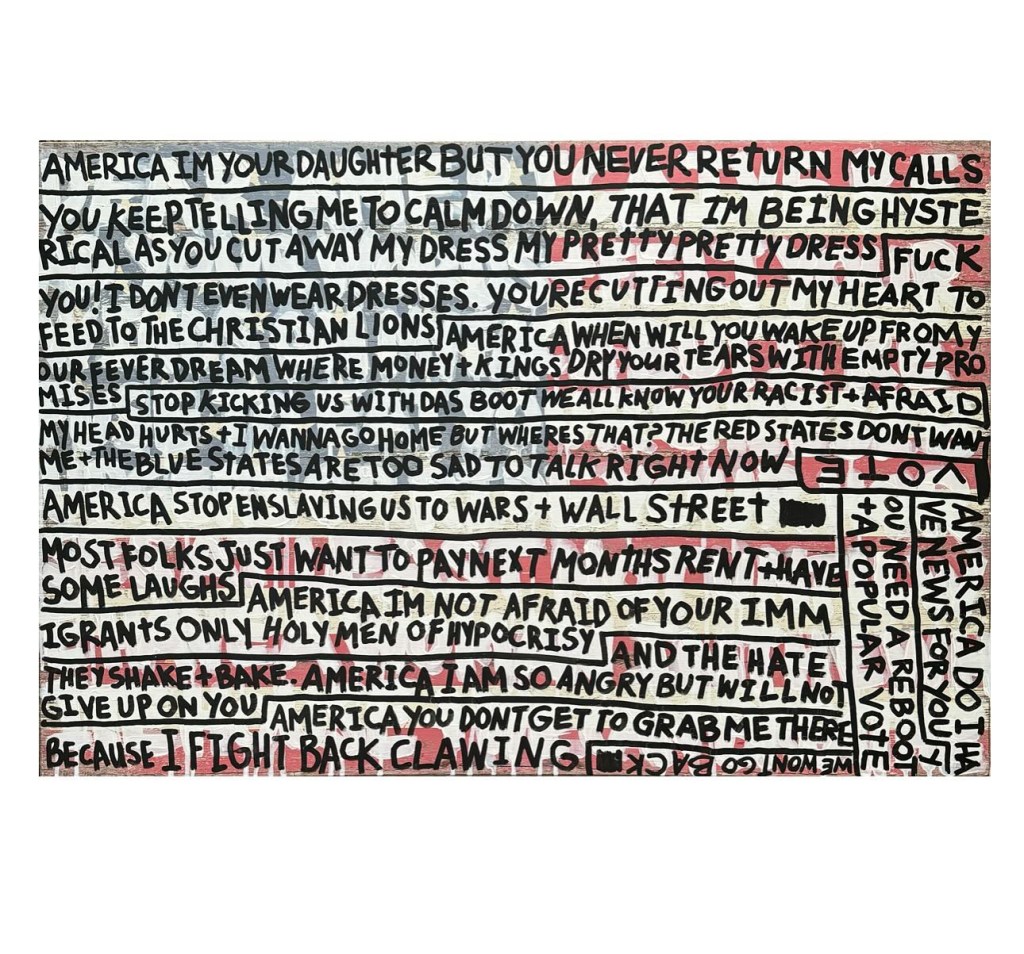 AMERICA IM YOUR DAUGHTER BUT YOU NEVER RETURN MY CALLS
YOU KEEP TELLING ME TO CALM DOWN, THAT IM BEING HYSTE
RICAL AS YOU CUT AWAY MY DRESS MY PRETTY PRETTY DRESS FUCK
YOU! I DONT EVEN WEAR DRESSES. YOURE CUTTING OUT MY HEART TO
FEED TO THE CHRISTIAN LIONS AMERICA WHEN WILL YOU WAKE UP FROM Y
OUR FEVER DREAM WHERE MONEY + KINGS DRY YOUR TEARS WITH EMPTY PRO
MISES STOP KICKING US WITH DAS BOOT WE ALL KNOW YOUR RACIST + AFRAID
MY HEAD HURTS + I WANNA GO HOME BUT WHERES THAT? THE RED STATES DONT WANT
ME + THE BLUE STATES ARE TOO SAD TO TALK RIGHT NOW
AMERICA STOP ENSLAVING US TO WARS + WALL STREET
MOST FOLKS JUST WANT TO PAY NEXT MONTHS RENT + HAVE
SOME LAUGHS AMERICA IM NOT AFRAID OF YOUR IMM
IGRANTS ONLY HOLY MEN OF HYPOCRISY AND THE HATE
THEY SHAKE + BAKE. AMERICA I AM SO ANGRY BUT WILL NOT
GIVE UP ON YOU AMERICA YOU DONT GET TO GRAB ME THERE
BECAUSE I FIGHT BACK CLAWING
WE WONT GO BACK
AMERICA DO I HA
VE NEWS FOR YOU Y
OU NEED A REBOOT
+ A POPULAR VOTE